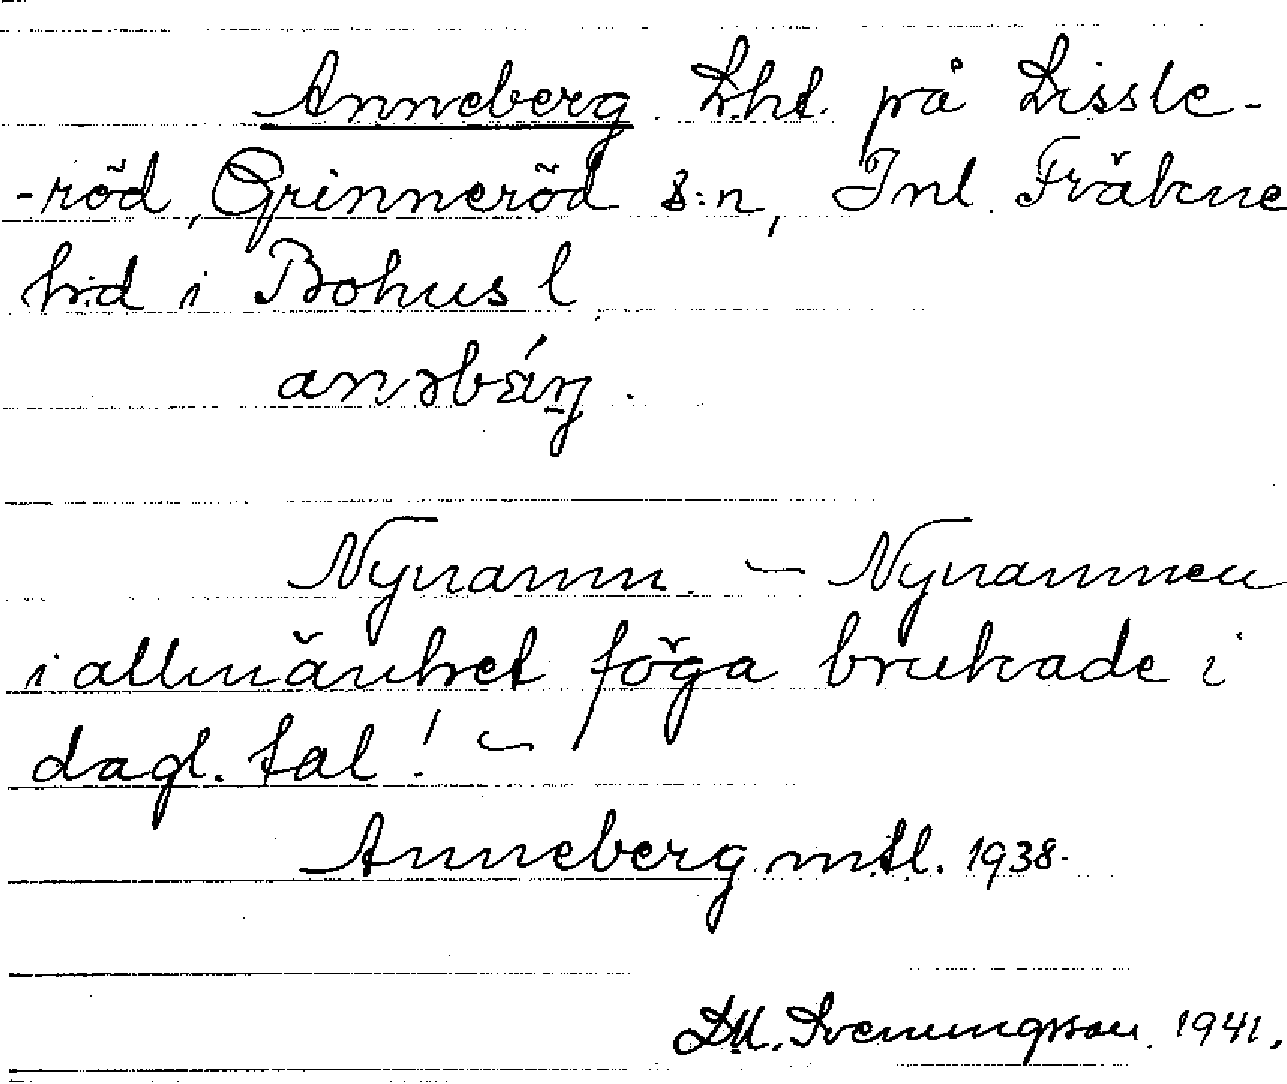 Anneberg. Lht. på Lissle-
-röd, Grinneröd s:n, Inl. Fräkne
hd i Bohusl.
anəbǽrg.
Nynamn. — Nynamnen
i allmänhet föga brukade i
dagl. tal! —
Anneberg mtl. 1938.
Sveningsson. 1941.